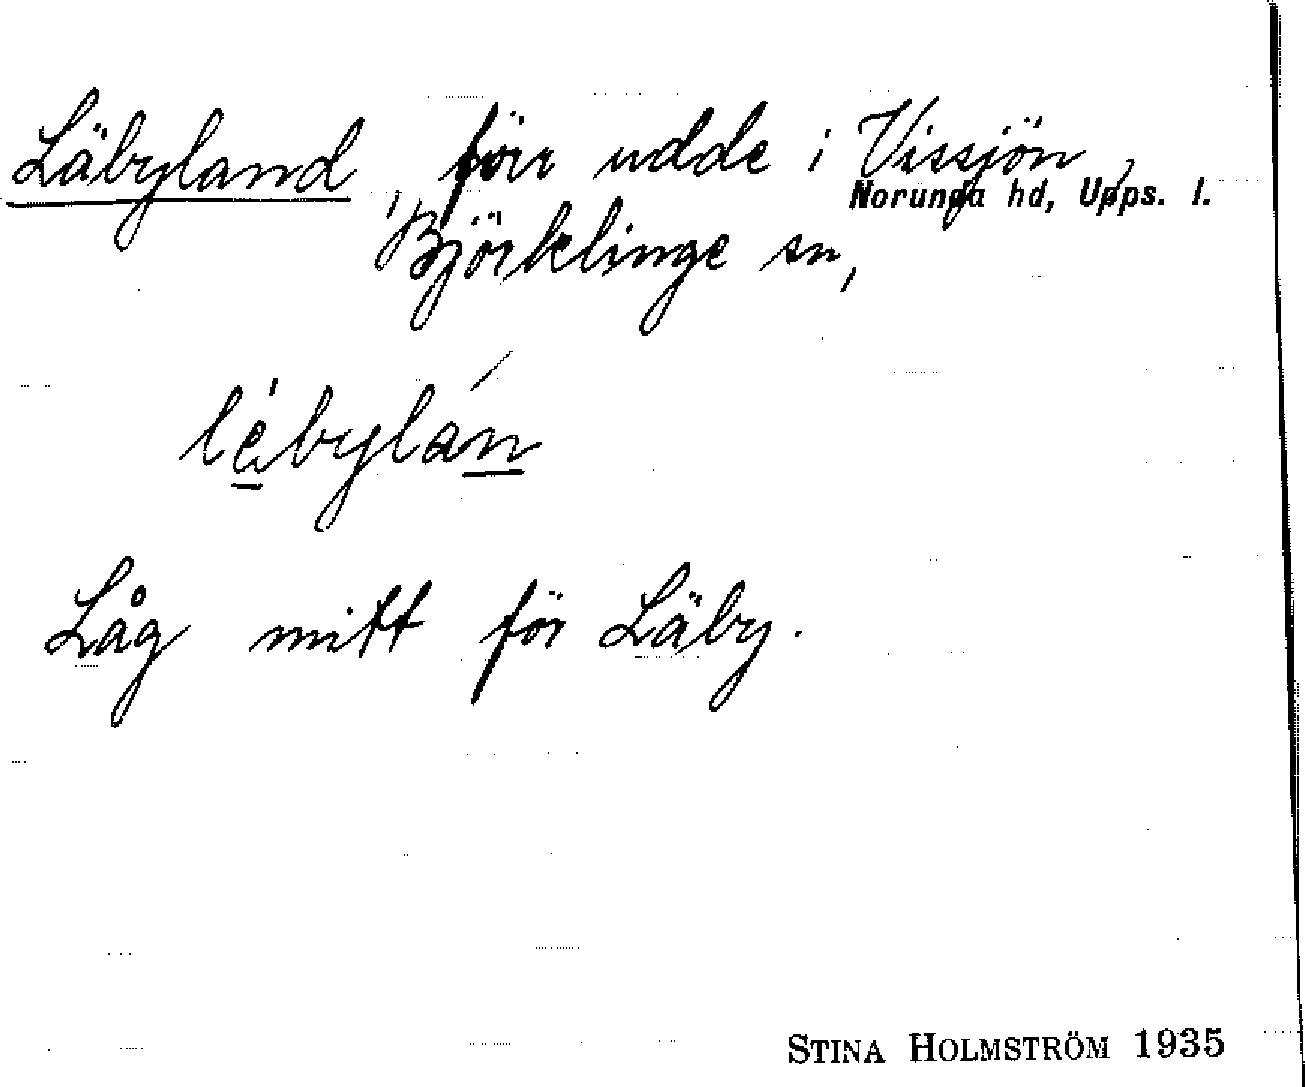 Läbyland, förr udde i Vissjön,
Norunda hd, Upps. l.
Björklinge sn,
lèbylán
Låg mitt för Läby.
STINA HOLMSTRÖM 1935